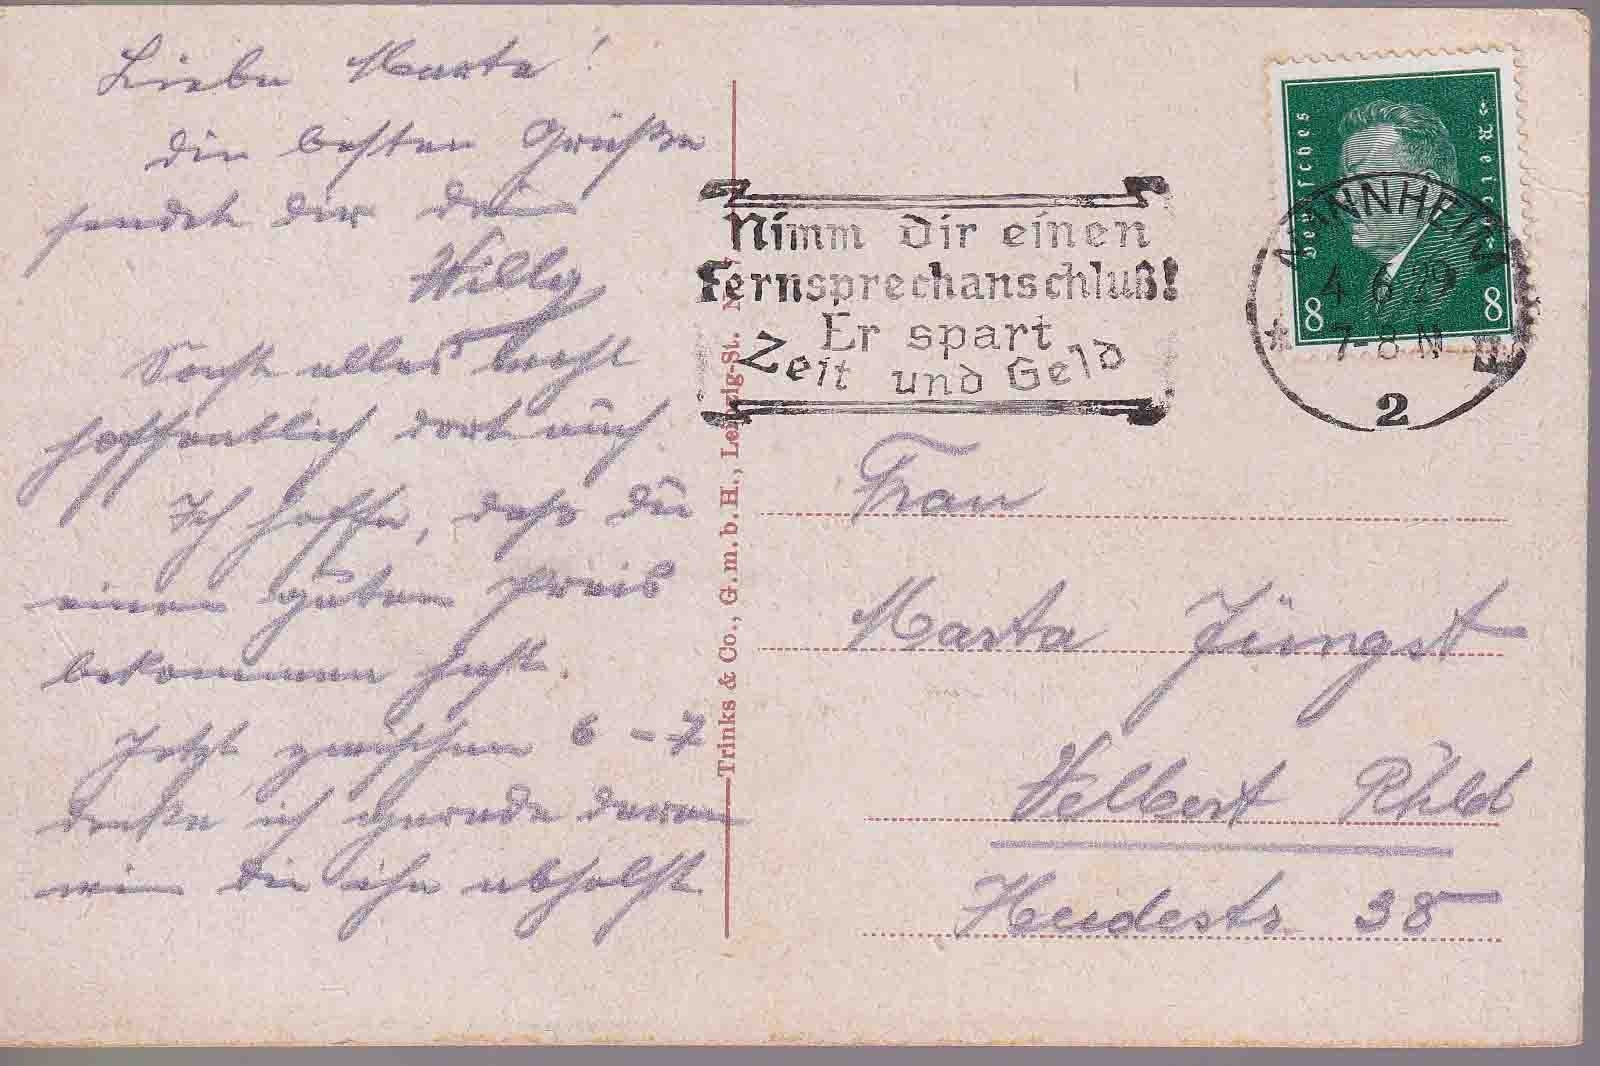 Liebe Marta!
die besten Grüße
sendet dir dein
Willy
Sonst alles wohl
hoffentlich dort auch.
Ich hoffe, dass du
einen guten Preis
bekommen hast.
Jetzt zwischen 6-7
denke ich gerade daran
wie du ihn abholst
Trinks & Co., G.m.b.H., Leipzig-St.
Nimm Dir einen
Fernsprechanschluß!
Er spart
Zeit und Geld
Deutsches Reich
8 8
MANNHEIM
4 6 29
7-8 N
2
Frau
Marta Jüngst
Velbert Rhld
Heidestr. 38